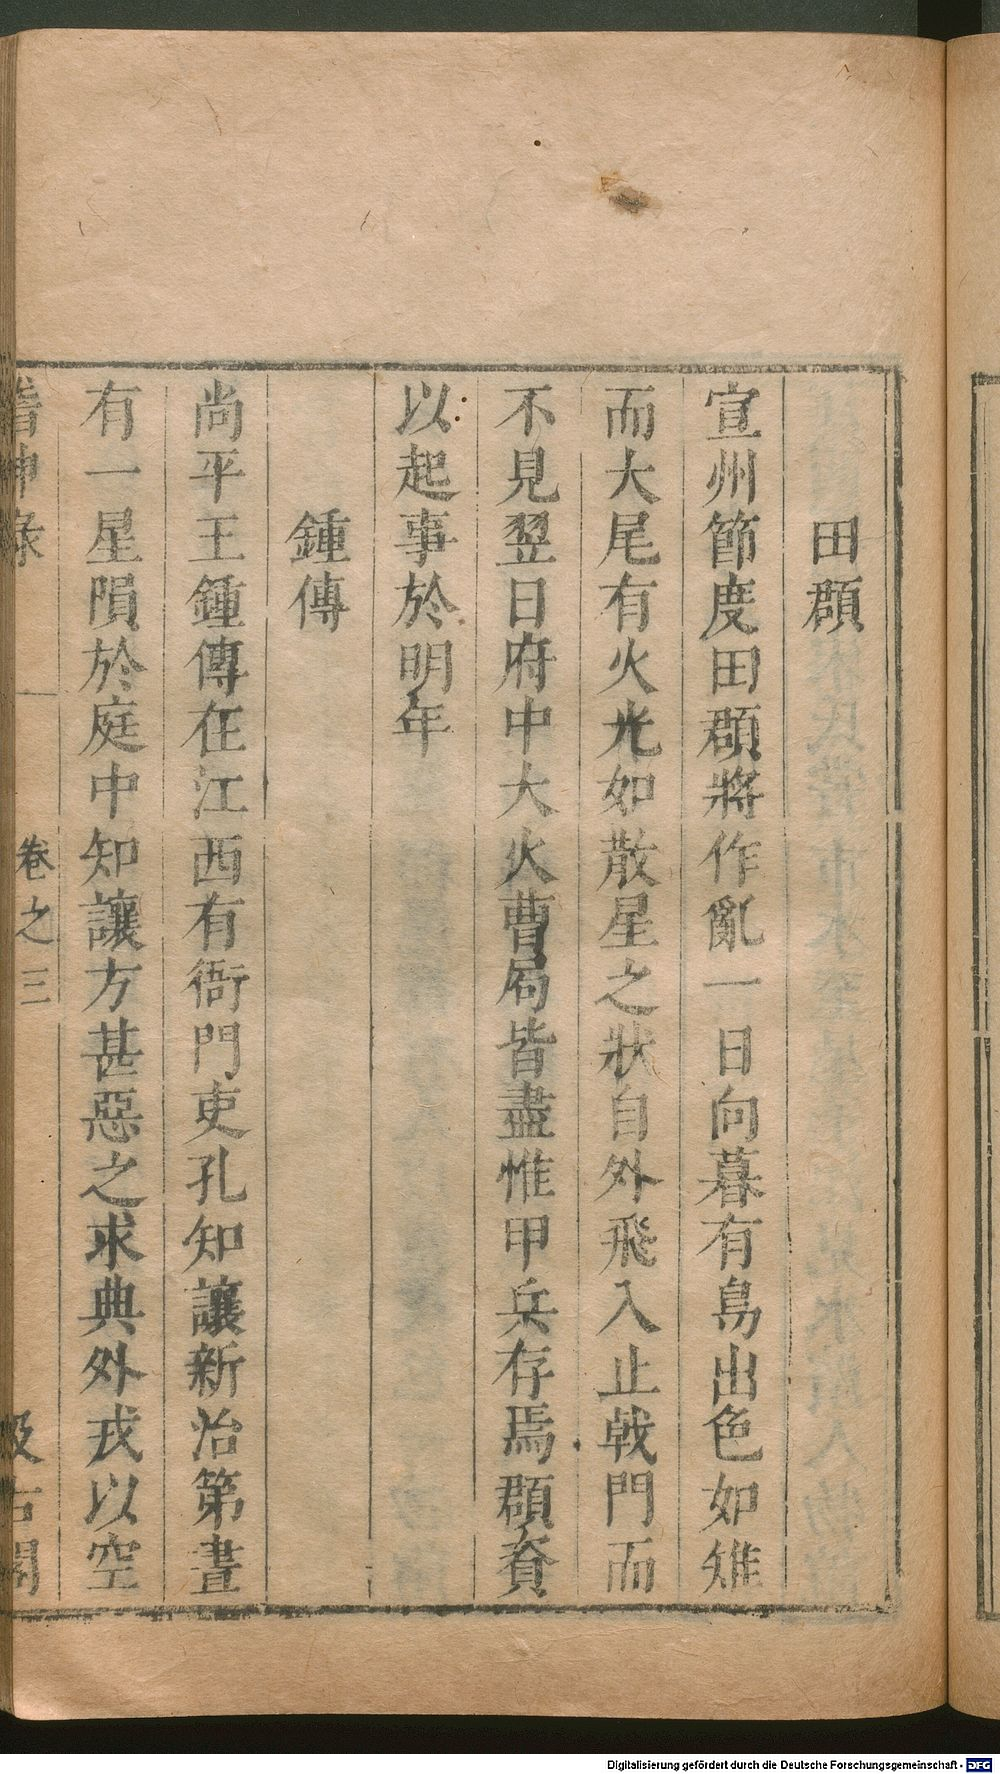 田頵
宣州節度田頵將作亂一日向暮有鳥出色如雉
而大尾有火光如散星之狀自外飛入止戟門而
不見翌日府中大火曹局皆盡惟甲兵存焉頵資
以起事於明年
鍾傳
尚平王鍾傳在江西有衙門吏孔知讓新治第晝
有一星隕於庭中知讓方甚惡之求典外戎以空
稽神錄 卷之三 汲古閣
Digitalisierung gefördert durch die Deutsche Forschungsgemeinschaft - DFG